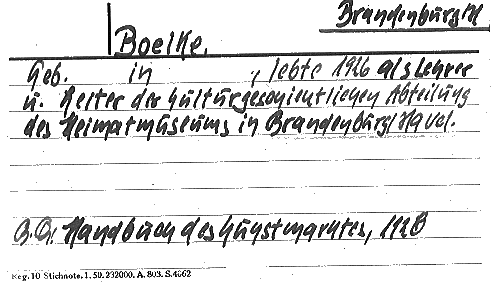 Brandenburg/H
Boelke.
Geb. in , lebte 1926 als Lehrer
u. Leiter der kulturgeschichtlichen Abteilung
des Heimatmuseums in Brandenburg/Havel.
Handbuch des Kunstmarktes,
Reg. 10 Stichnote. 1. 50. 232000. A. 803. S. 4662